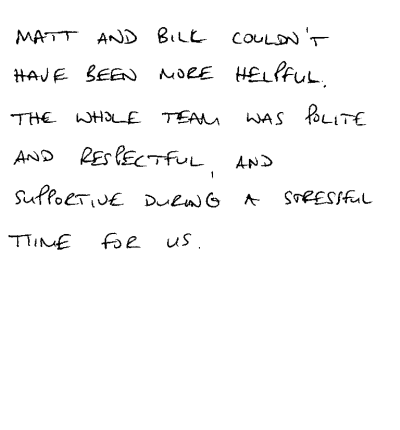 MATT AND BILL COULDN'T
HAVE BEEN MORE HELPFUL.
THE WHOLE TEAM WAS POLITE
AND RESPECTFUL, AND
SUPPORTIVE DURING A STRESSFUL
TIME FOR US.